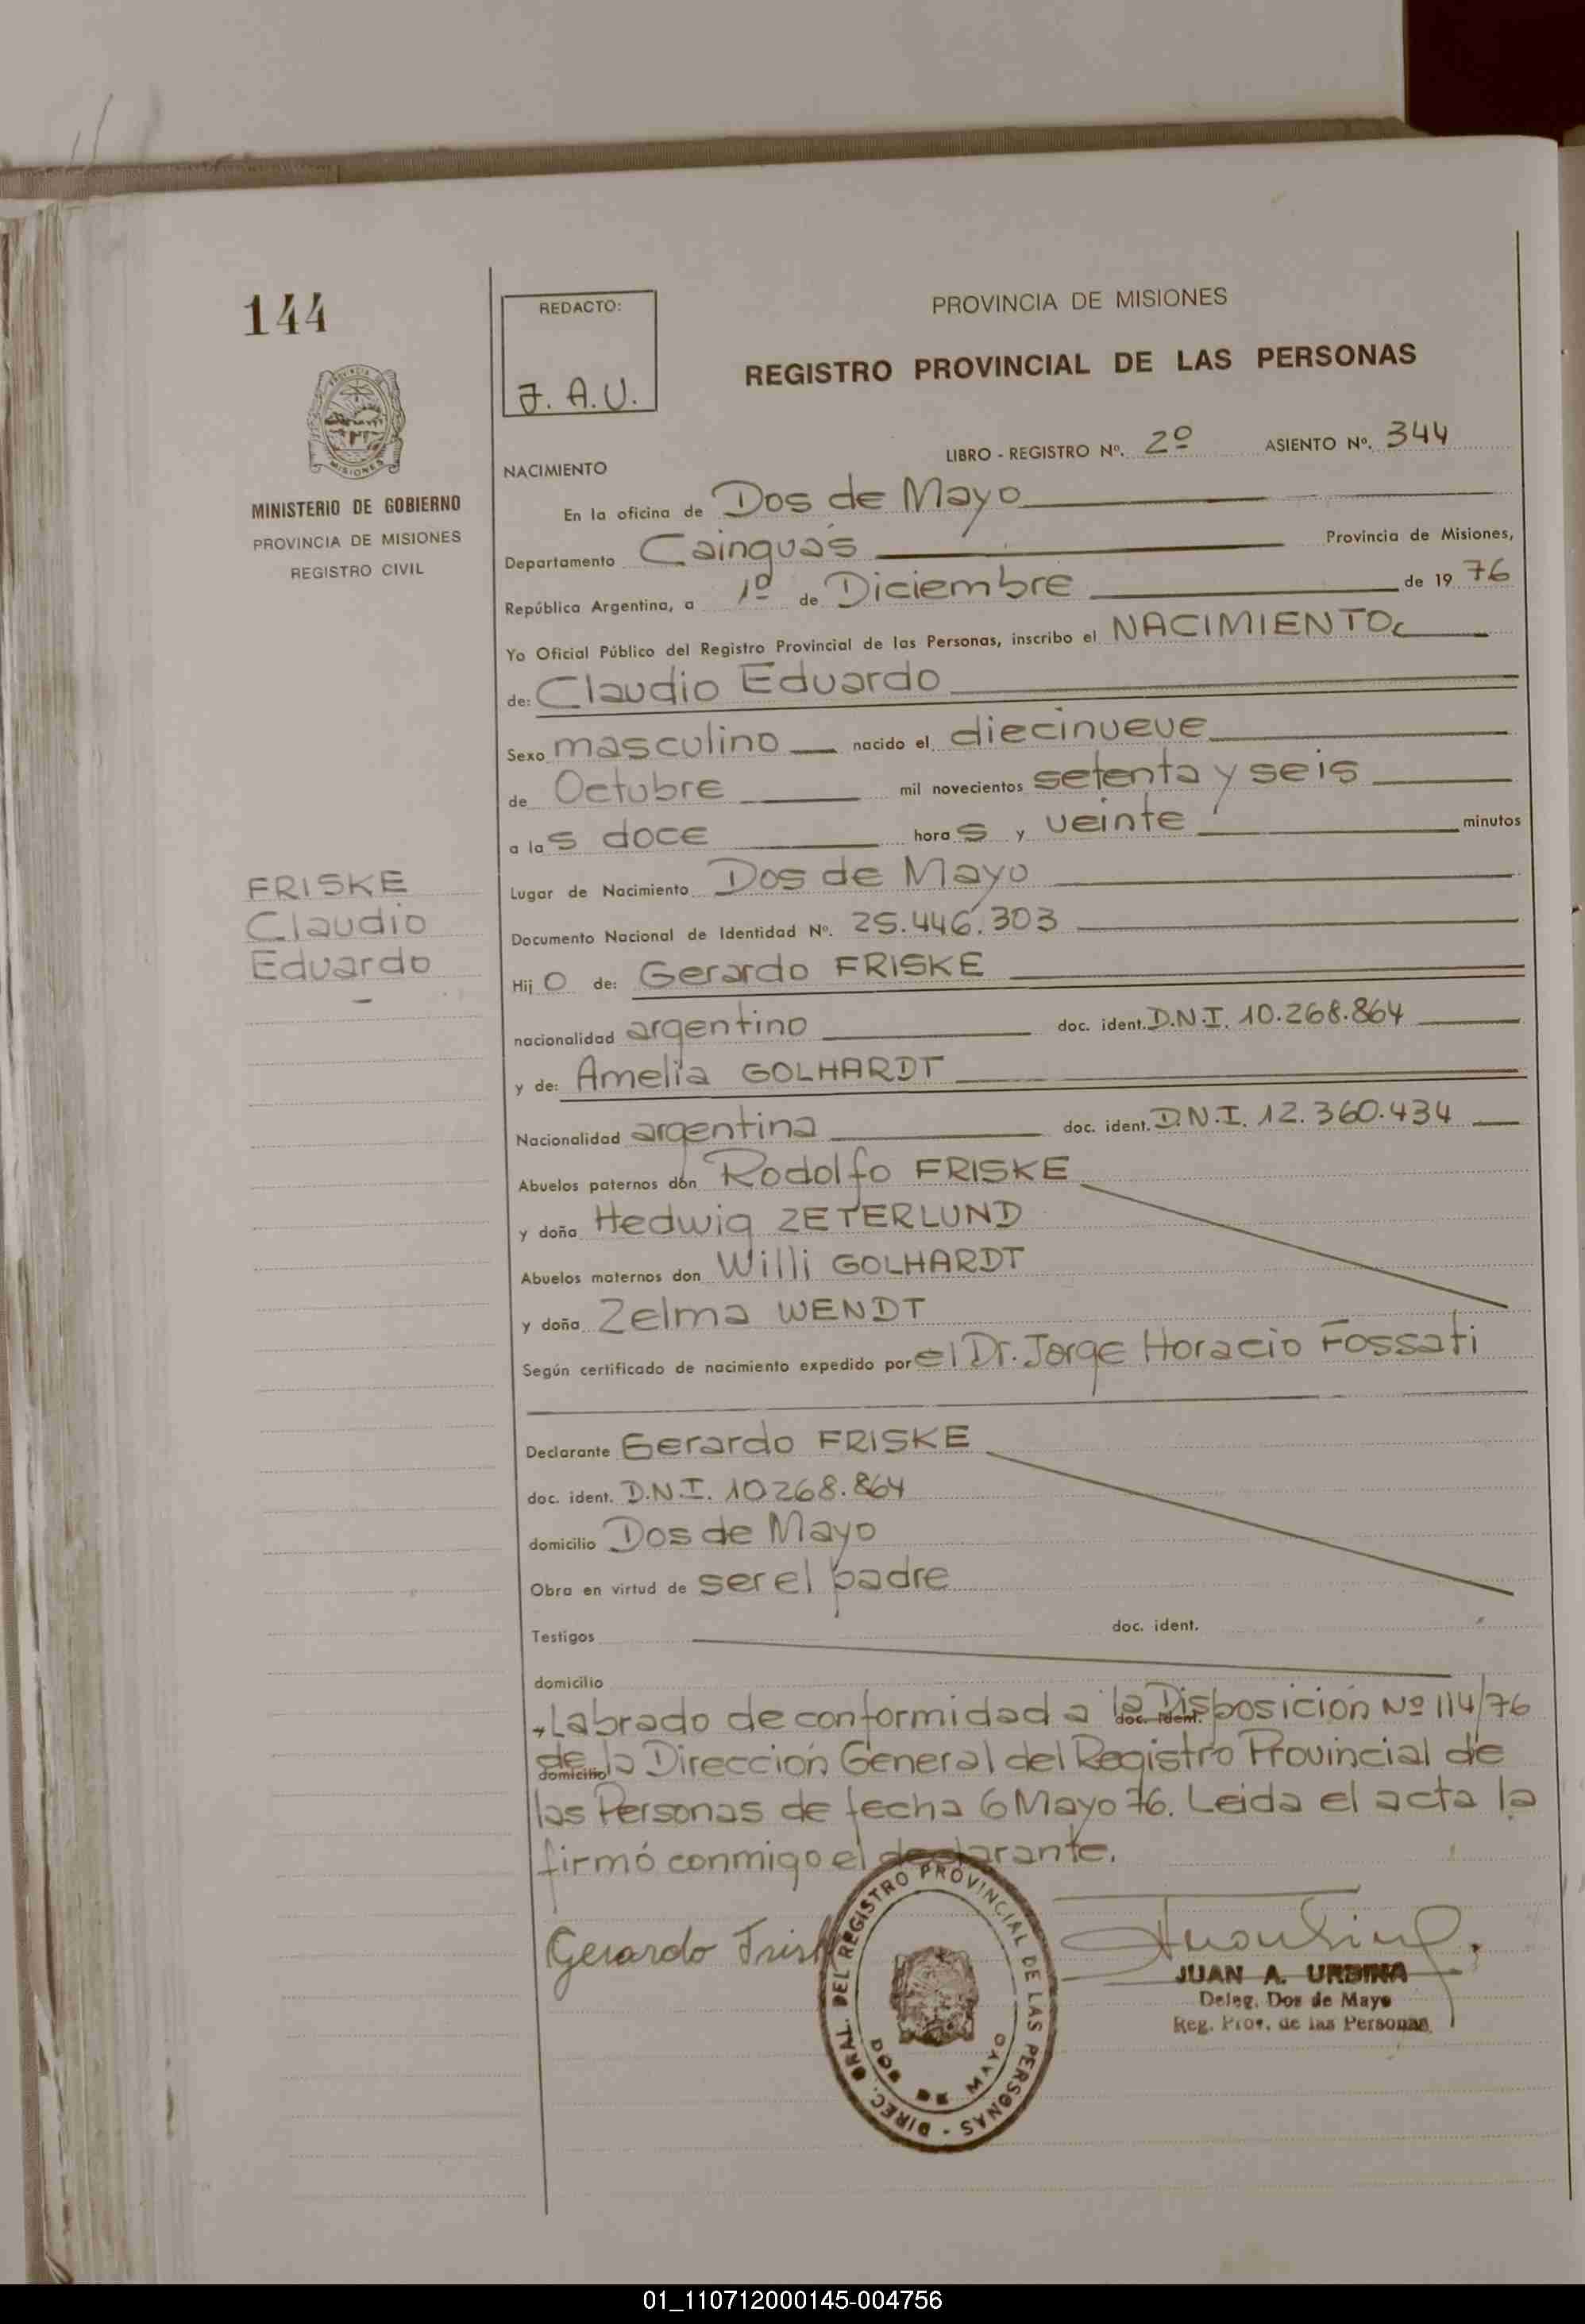 144
REDACTO:
J. A. U.
PROVINCIA DE MISIONES
REGISTRO PROVINCIAL DE LAS PERSONAS
MISIONES
MINISTERIO DE GOBIERNO
PROVINCIA DE MISIONES
REGISTRO CIVIL
LIBRO - REGISTRO Nº. 2º ASIENTO Nº. 344
NACIMIENTO
En la oficina de Dos de Mayo
Departamento Cainguás Provincia de Misiones,
República Argentina, a 1º de Diciembre de 19 76
Yo Oficial Público del Registro Provincial de las Personas, inscribo el NACIMIENTO
de: Claudio Eduardo
Sexo masculino nacido el diecinueve
de Octubre mil novecientos setenta y seis
a las doce horas y veinte minutos
Lugar de Nacimiento Dos de Mayo
FRISKE
Claudio
Eduardo
Documento Nacional de Identidad Nº. 25.446.303
Hijo de: Gerardo FRISKE
nacionalidad argentino doc. ident. D.N.I. 10.268.864
y de: Amelia GOLHARDT
Nacionalidad argentina doc. ident. D.N.I. 12.360.434
Abuelos paternos don Rodolfo FRISKE
y doña Hedwig ZETERLUND
Abuelos maternos don Willi GOLHARDT
y doña Zelma WENDT
Según certificado de nacimiento expedido por el Dr. Jorge Horacio Fossati
Declarante Gerardo FRISKE
doc. ident. D.N.I. 10268.864
domicilio Dos de Mayo
Obra en virtud de ser el padre
Testigos doc. ident.
domicilio
Labrado de conformidad a la Disposición Nº 114/76
doc. ident.
de la Dirección General del Registro Provincial de
domicilio
las Personas de fecha 6 Mayo 76. Leida el acta la
firmó conmigo el declarante.
Gerardo Frisk
DIREC. GRAL. DEL REGISTRO PROVINCIAL DE LAS PERSONAS -
DOS DE MAYO
JUAN A. URBINA
Deleg. Dos de Mayo
Reg. Prov. de las Personas
01_110712000145-004756